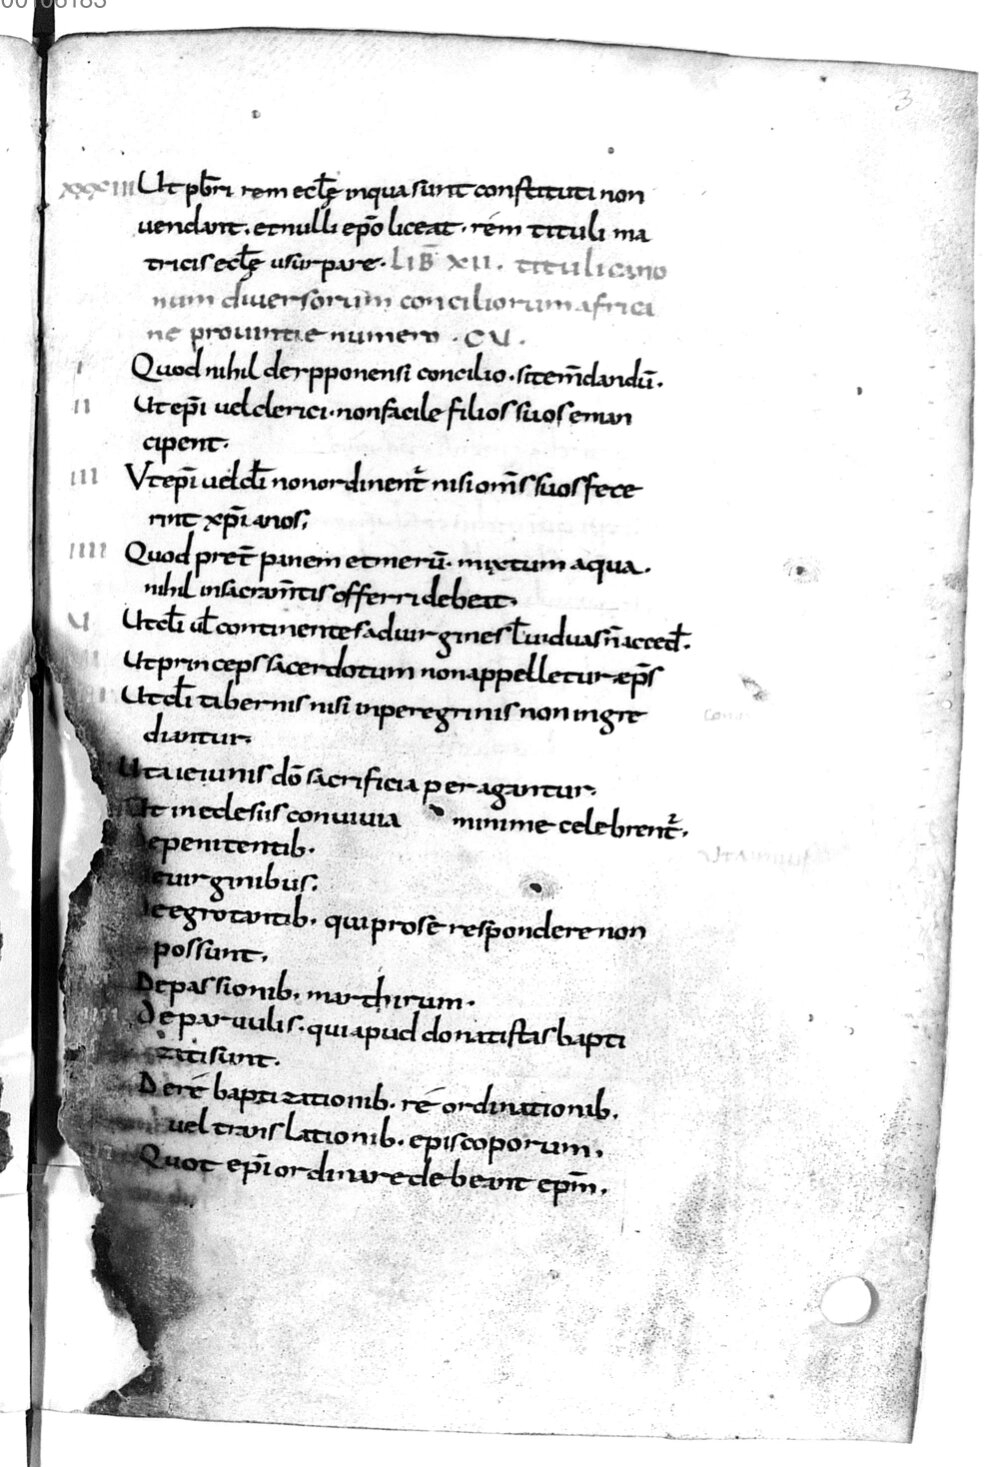 3
XXXIII Ut pb̅ri rem ecl̅ę inqua sunt constituti non
uendant. et nulli ep̅o liceat. rém tituli ma
tricis ecl̅ę usurpare. LIB̅ XII. tituli cano
num diuersorum conciliorum africa
ne prouintie numero . CV .
I Quod nihil de ypponensi concilio. sit em̅dandū.
II Ut ep̅i uel clerici. non facile filios suos eman
cipent.
III Vt ep̅i uel cl̅i non ordinent̅ nisi om̅s suos fece
rint xp̅ianos;
IIII Quod pret̅ panem et merū. mixtum aqua.
nihil in sacram̅tis offerri debeat.
V Ut cl̅i ul̅ continentes ad uirgines l̅ uiduas n̅ acced̅.
Ut princeps sacerdotum non appelletur æp̅s
Ut cl̅i tabernis nisi in peregrinis non ingre
diantur.
Ut a ieiunis dō sacrificia peragantur.
Ut in eclesiis conuiuia minime celebrent̅.
De penitentib.
De uirginibus;
De egrotantib. qui pro se respondere non
possunt.
De passionib. marthirum.
De paruulis. qui apud donatistas bapti
zati sunt.
De ré baptizationib. ré ordinationib.
uel translationib. episcoporum.
Quot ep̅i ordinare debeant ep̅m.